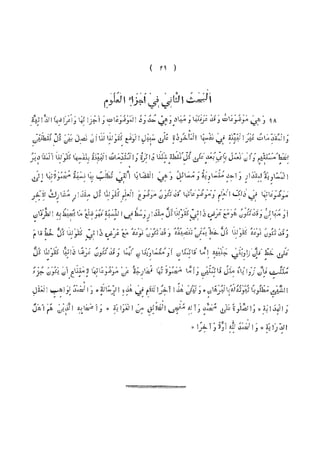 ( ٢٩ )
اَلْمَبْحَثُ الثَّانِي فِي أَجْزَاءِ الْعُلُومِ
١٨ وَهِيَ مَوْضُوعَاتٌ وَقَدْ عَرَفْتَهَا وَمَبَادٍ وَهِيَ حُدُودُ الْمَوْضُوعَاتِ وَأَجْزَائِهَا وَأَعْرَاضِهَا الذَّاتِيَّةِ
وَالْمُقَدِّمَاتُ غَيْرُ الْبَيِّنَةِ فِي نَفْسِهَا الْمَأْخُوذَةُ عَلَى سَبِيلِ الْوَضْعِ كَقَوْلِنَا لَنَا أَنْ نَصِلَ بَيْنَ كُلِّ نُقْطَتَيْنِ
بِخَطٍّ مُسْتَقِيمٍ وَأَنْ نَعْمَلَ بِأَيِّ بُعْدٍ عَلَى كُلِّ نُقْطَةٍ شِئْنَا دَائِرَةً وَالْمُقَدِّمَاتُ الْبَيِّنَةُ بِنَفْسِهَا كَقَوْلِنَا الْمَقَادِيرُ
الْمُسَاوِيَةُ لِمِقْدَارٍ وَاحِدٍ مُتَسَاوِيَةٌ وَمَسَائِلُ وَهِيَ الْقَضَايَا الَّتِي تُطْلَبُ بِهَا نِسْبَةُ مَحْمُولَاتِهَا إِلَى
مَوْضُوعَاتِهَا فِي ذَلِكَ الْعِلْمِ وَمَوْضُوعَاتُهَا قَدْ تَكُونُ مَوْضُوعَ الْعِلْمِ كَقَوْلِنَا كُلُّ مِقْدَارٍ مُشَارِكٌ لِلْآخَرِ
أَوْ مُبَايِنٌ وَقَدْ تَكُونُ هُوَ مَعَ عَرَضٍ ذَاتِيٍّ كَقَوْلِنَا كُلُّ مِقْدَارٍ وَسَطٍ فِي النِّسْبَةِ فَهُوَ ضِلْعُ مَا يُحِيطُ بِهِ الطَّرَفَانِ
وَقَدْ تَكُونُ نَوْعَهُ كَقَوْلِنَا كُلُّ خَطٍّ يُمْكِنُ تَنْصِيفُهُ وَقَدْ تَكُونُ نَوْعَهُ مَعَ عَرَضٍ ذَاتِيٍّ كَقَوْلِنَا كُلُّ خَطٍّ قَامَ
عَلَى خَطٍّ فَإِنَّ زَاوِيَتَيْ جَنْبَتَيْهِ إِمَّا قَائِمَتَانِ أَوْ مُسَاوِيَتَانِ لَهُمَا وَقَدْ تَكُونُ عَرَضًا ذَاتِيًّا كَقَوْلِنَا كُلُّ
مُثَلَّثٍ فَإِنَّ زَوَايَاهُ مِثْلُ قَائِمَتَيْنِ وَأَمَّا مَحْمُولَاتُهَا فَخَارِجَةٌ عَنْ مَوْضُوعَاتِهَا لِامْتِنَاعِ أَنْ يَكُونَ جُزْءُ
الشَّيْءِ مَطْلُوبًا ثُبُوتُهُ لَهُ بِالْبُرْهَانِ * وَلْيَكُنْ هَذَا آخِرَ الْكَلَامِ فِي هَذِهِ الرِّسَالَةِ * وَالْحَمْدُ لِوَاهِبِ الْعَقْلِ
وَالْهِدَايَةِ * وَالصَّلَوةُ عَلَى مُحَمَّدٍ وَآلِهِ مُنْجِي الْخَلَائِقِ مِنَ الْغَوَايَةِ * وَأَصْحَابِهِ الَّذِينَ هُمْ أَهْلُ
الدِّرَايَةِ * وَالْحَمْدُ لِلَّهِ أَوَّلًا وَآخِرًا *